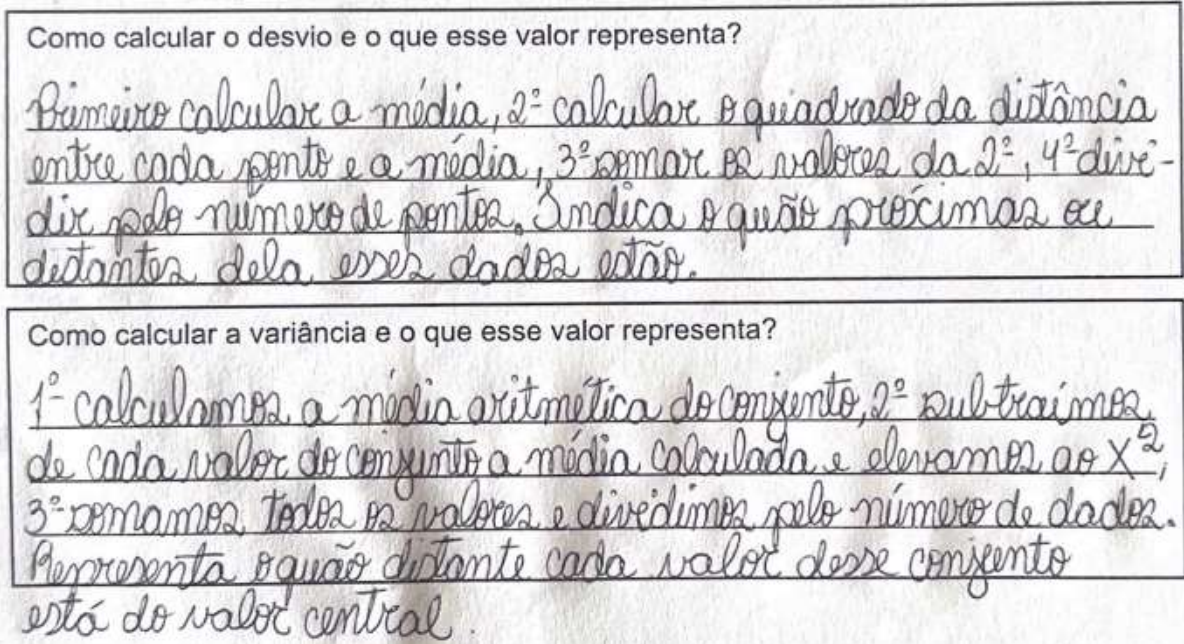 Como calcular o desvio e o que esse valor representa?
Primeiro calcular a média, 2º calcular o quadrado da distância
entre cada ponto e a média, 3º somar os valores da 2º, 4º divi-
dir pelo número de pontos. Indica o quão próximas ou
distantes dela esses dados estão.
Como calcular a variância e o que esse valor representa?
1º calculamos a média aritmética do conjunto, 2º subtraímos
de cada valor do conjunto a média calculada e elevamos ao x²,
3º somamos todos os valores e dividimos pelo número de dados.
Representa o quão distante cada valor desse conjunto
está do valor central.